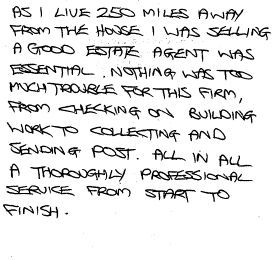 AS I LIVE 250 MILES AWAY
FROM THE HOUSE I WAS SELLING
A GOOD ESTATE AGENT WAS
ESSENTIAL. NOTHING WAS TOO
MUCH TROUBLE FOR THIS FIRM,
FROM CHECKING ON BUILDING
WORK TO COLLECTING AND
SENDING POST. ALL IN ALL
A THOROUGHLY PROFESSIONAL
SERVICE FROM START TO
FINISH.